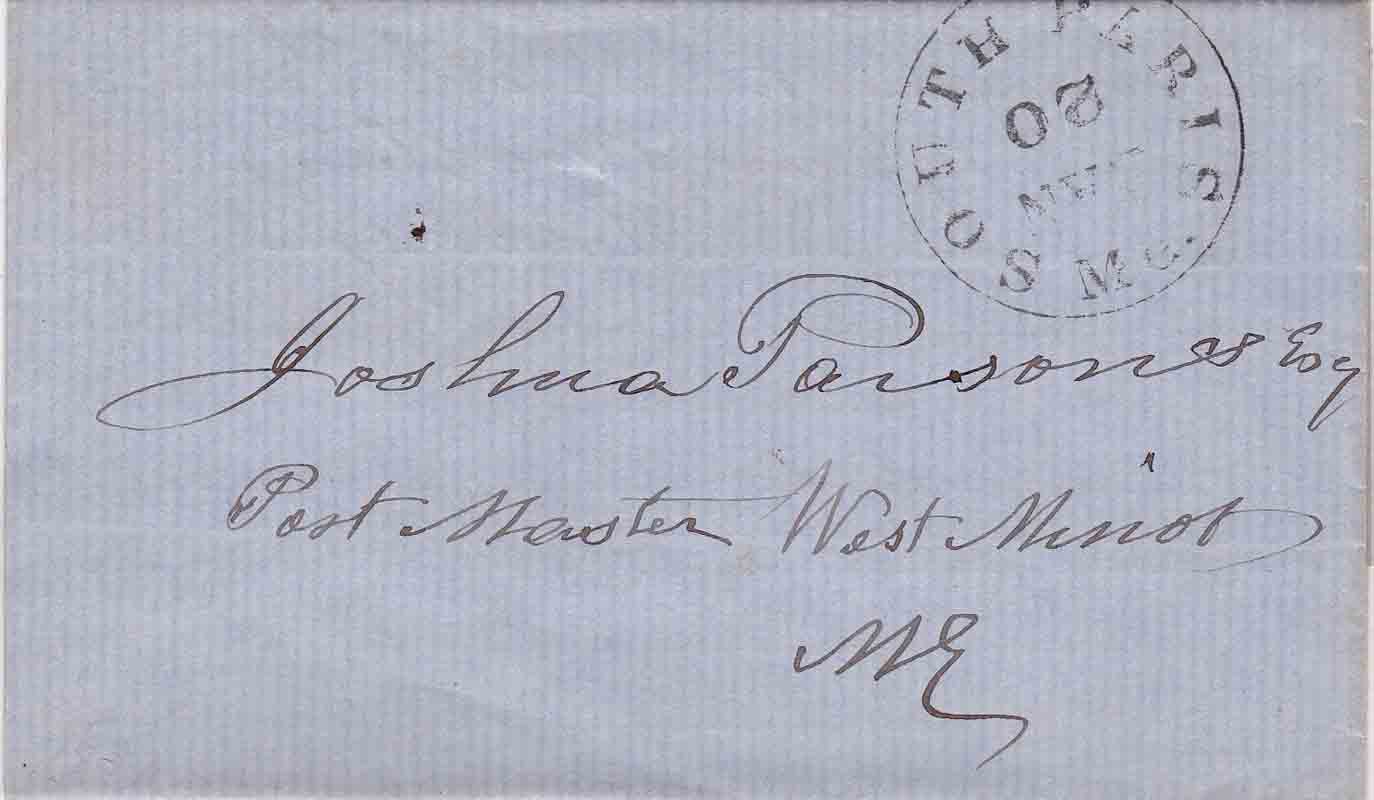 SOUTH PARIS Me.
20
Joshua Parsons Esq
Post Master West Minot
ME